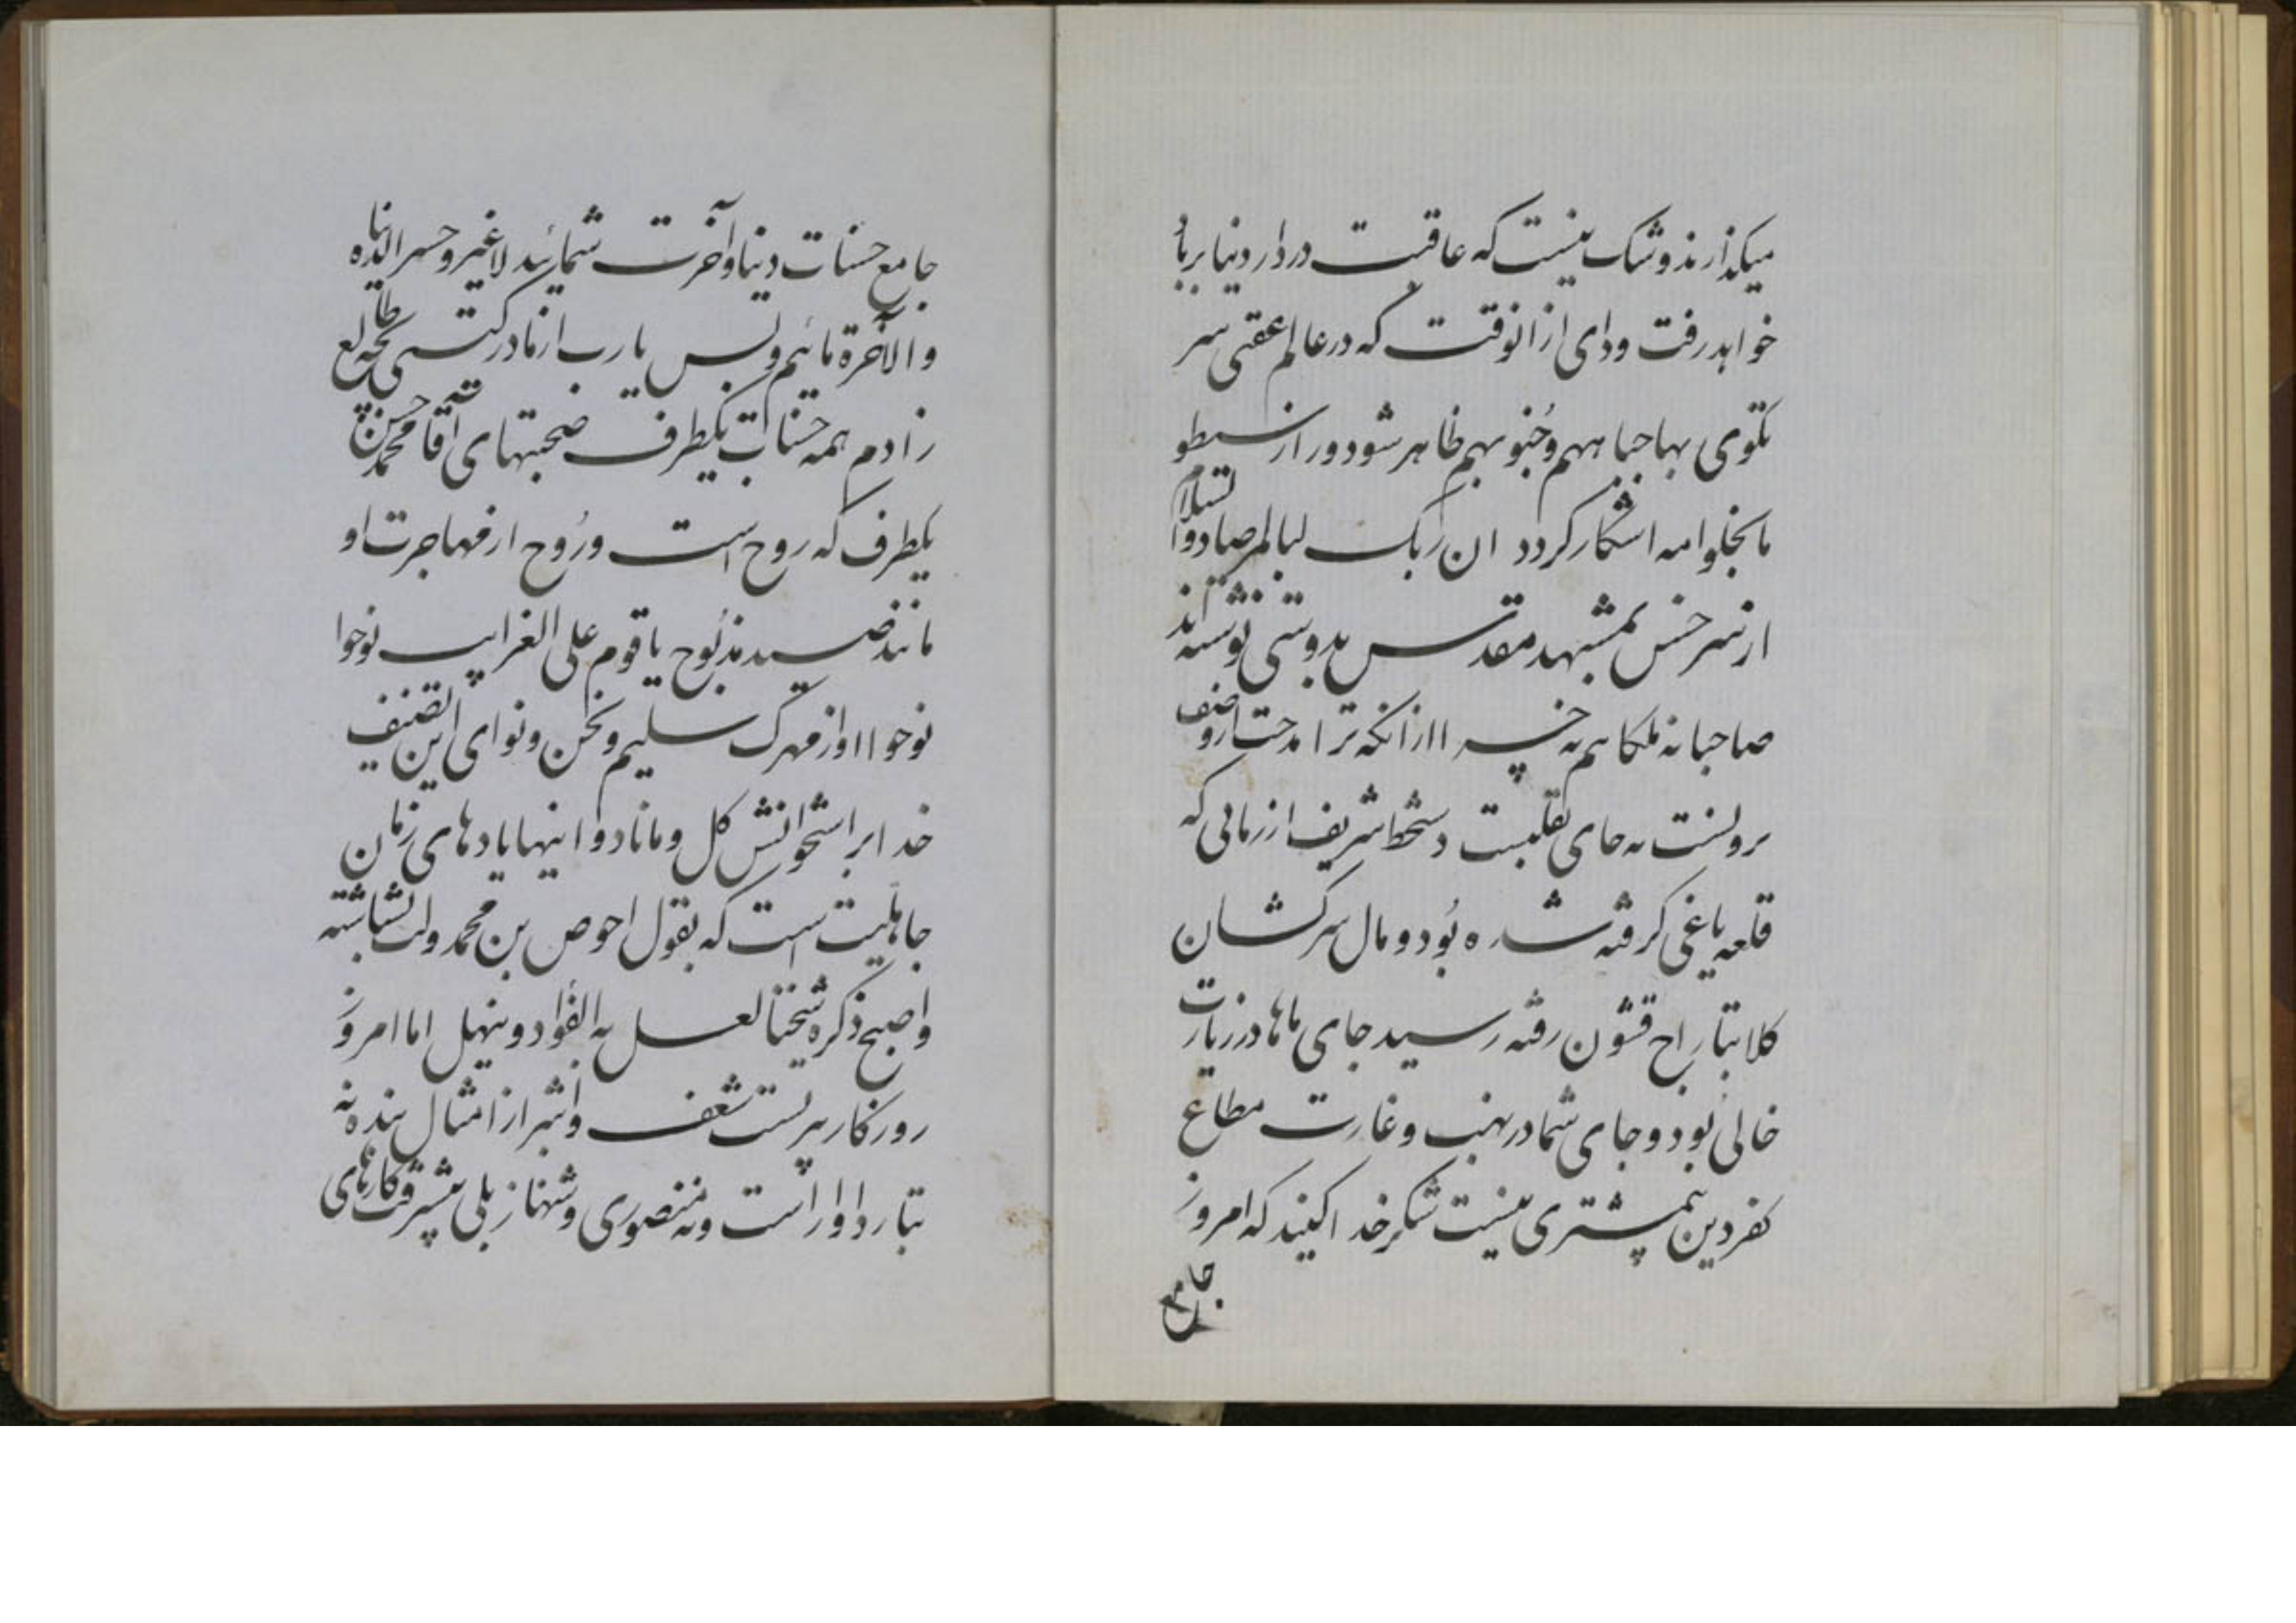 میکذارند و شک نیست که عاقبت در دار دنیا بر باد
خواهد رفت و وای از انوقت که در عالم عقبی سر
تکوی بها جباههم و جنوبهم ظاهر شود و راز
ما اشکار کردد ان ربک لبالمرصاد
از سرخس بمشهد مقدس بدوشی توشته اند
صاحبانه ملکا هم نه
نه جای تقلبست دستخط شریف از زمانی که
قلعه یاغی کرفته شده بود و مال سرکشان
کلا بتاراج قشون رفته رسید جای ماها در زیارت
خالی بود و جای شما در نهب و غارت مطاع
کفر و دین بیمشتری نیست شکر خدا کنید که امروز
جامع
جامع حسنات دنیا و آخرت شمائید لا غیر و خسر الدنیا
والآخرة مائیم و بس یا رب از مادر کیتی بچه طالع
زادم همه حسنات یکطرف صحبتهای آقا محمد حسن
یکطرف که روح است و روح از مهاجرت او
مانند صید مذبوح یا قوم علی الغرایب نوحوا
نوحوا اواز مهرک سلیم و لحن و نوای این تصنیف
خدا بر استخوانش کل و مانادوا اینها یادهای زمان
جاهلیت است که بقول احوص بن محمد ولت بشاشته
واصبح ذکره شیخنا لعسل به الفؤاد وینهل اما امروز
روزکار پیریست شعف و اشر از امثال بنده نه
بتار داوراست ونه منصوری و شهناز بلی پیشرفت کارهای